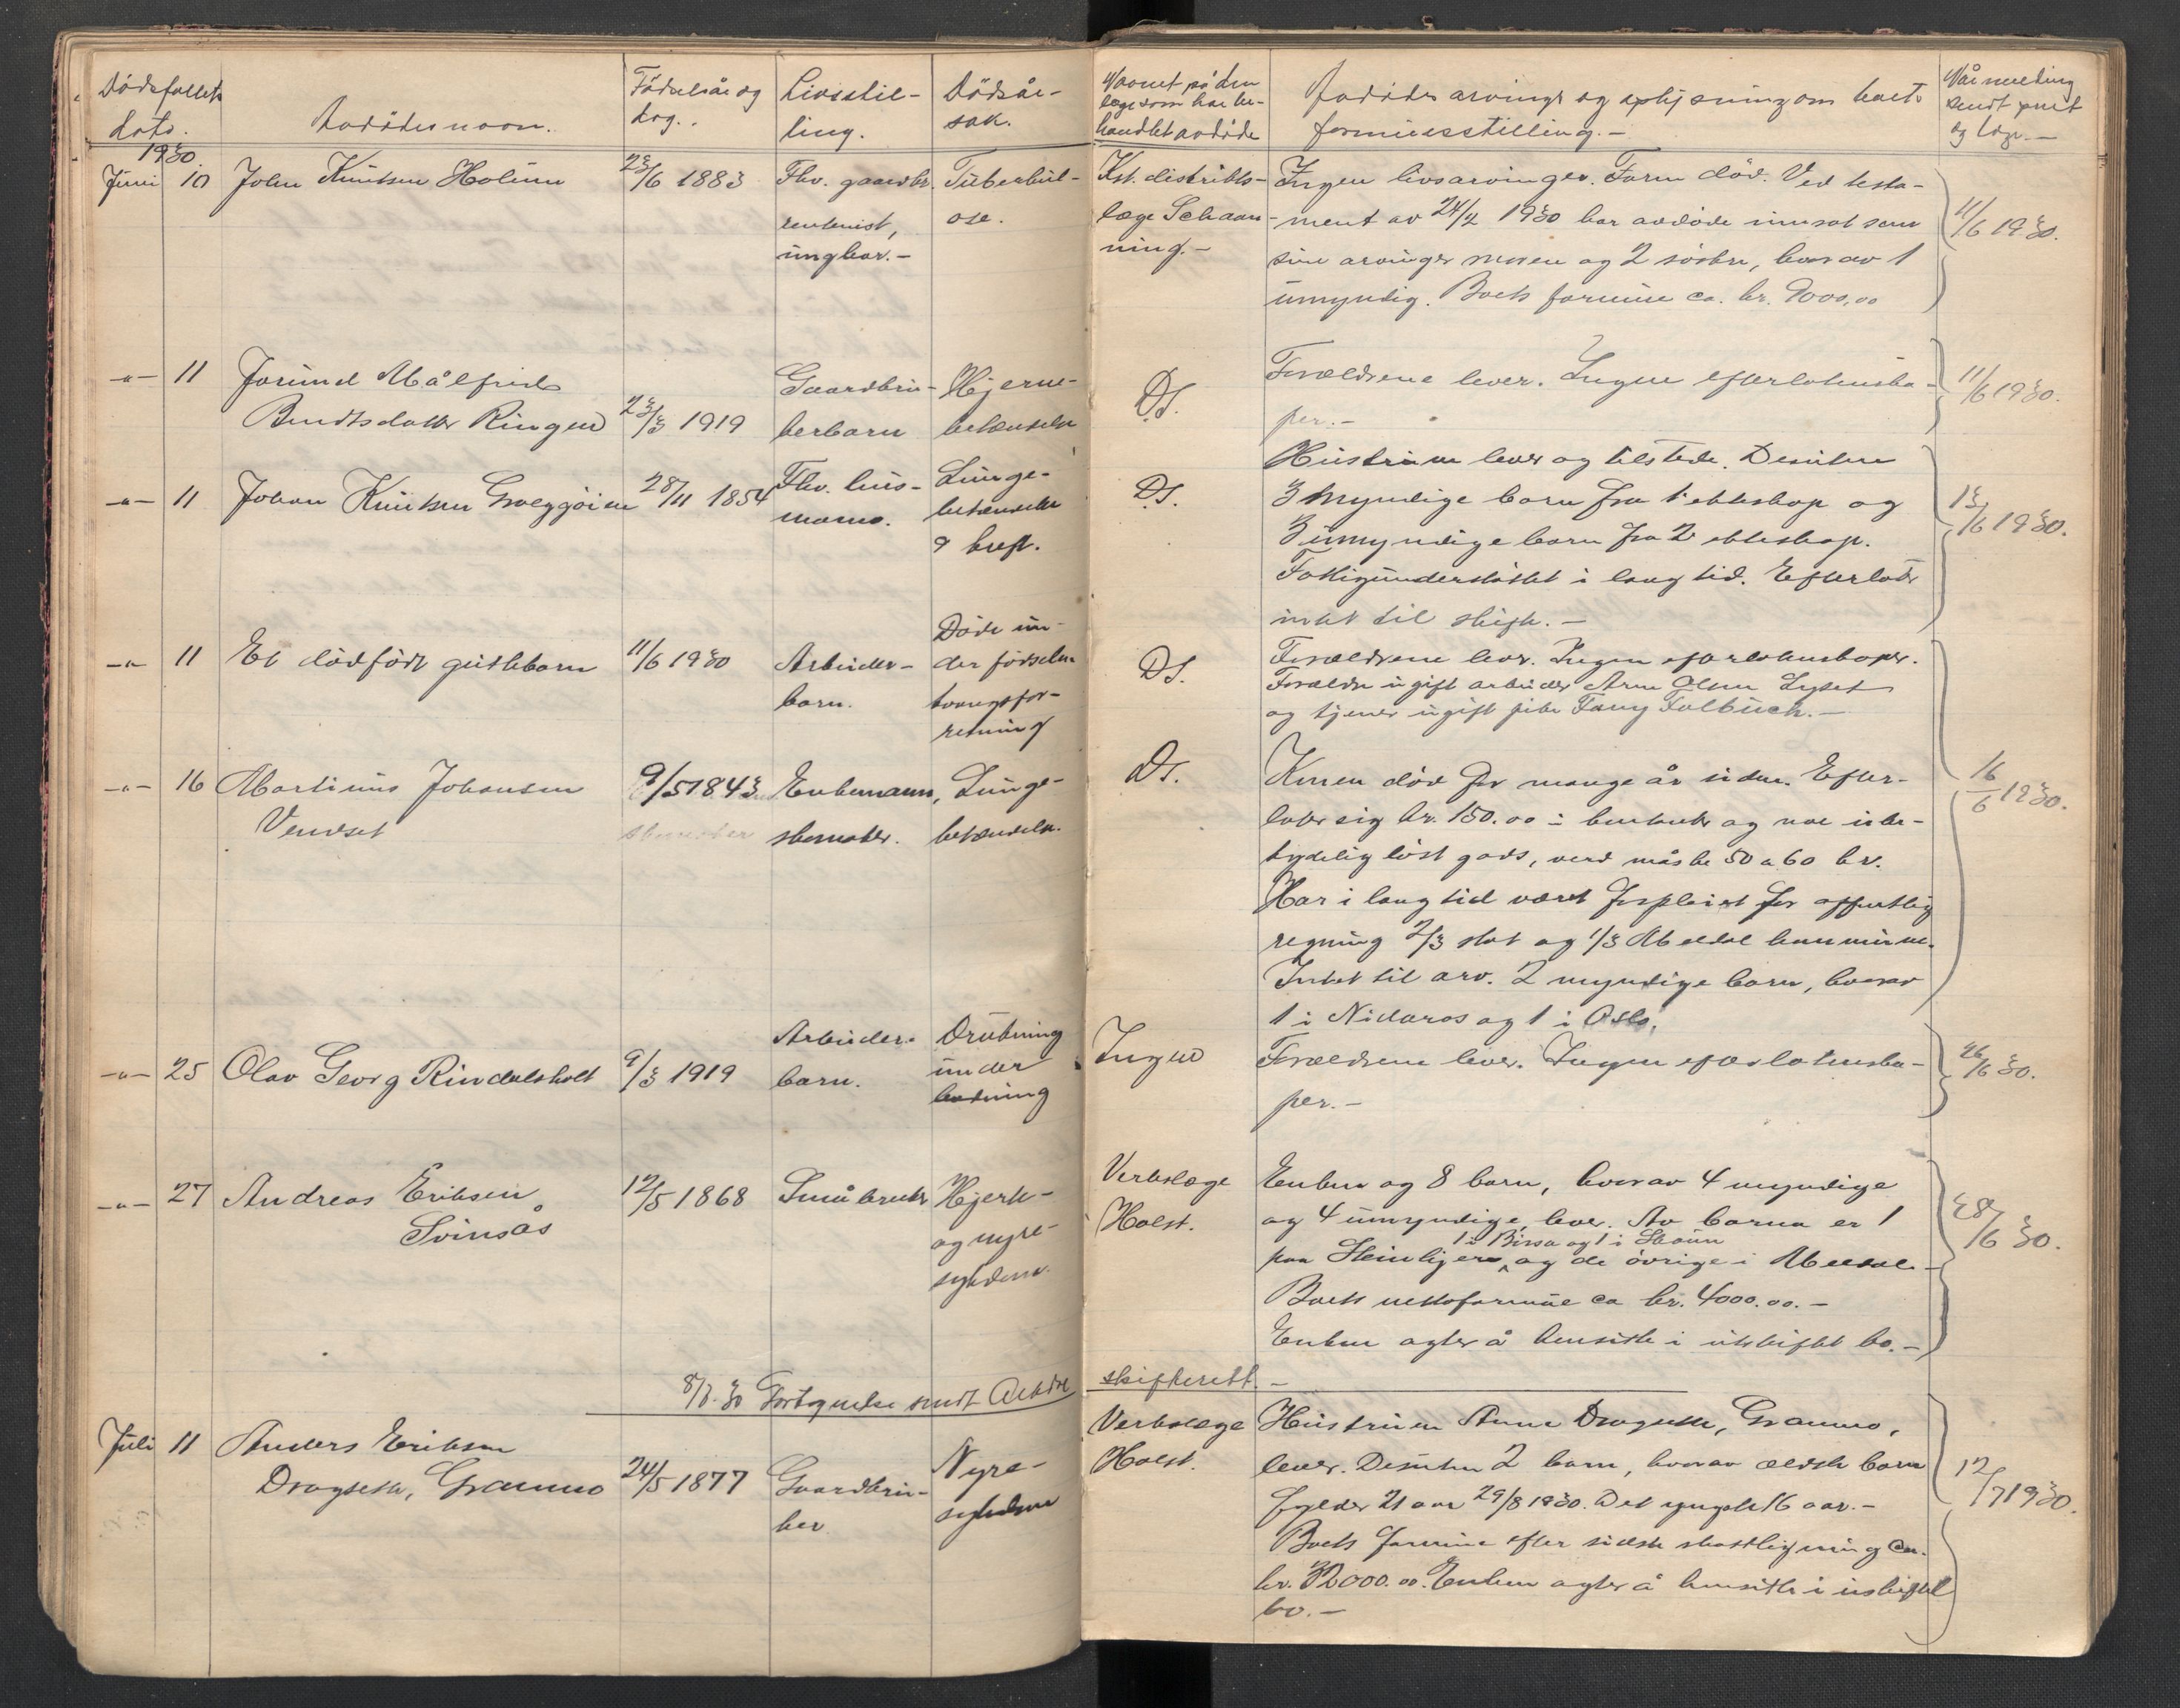 Dödsfallets
dato.
Avdödes navn.
Födselsår og
dag.
Livsstil-
ling.
Dödsår-
sak.
Navnet på den
læge som har be-
handlet avdöde
Avdödes arvinger og oplysning om boets
formuesstilling.-
Når melding
sendt
og lign.-
1930
Juni 10 John Knutsen Holum 23/6 1883 Fhv. gaardbr.
rentenist,
ungkar.-
Tuberkul-
ose.
Kst. distrikts-
læge Schaan-
ning.-
Ingen livsarvinger. Farm död. Ved testa-
ment av 24/2 1930 har avdöde innsat som
sine arvinger moren og 2 söstre, hvorav 1
umyndig. Boets formue ca. kr. 9000,00
11/6 1930.
-"- 11 Jorund Målfrid
Berntsdatter Ringen 23/3 1919
Gaardbru-
kerbarn
Hjerne-
betændelse
DS.
Forældrene lever. Ingen efterlatenska-
per.-
11/6 1930.
-"- 11 Johan Knutsen 28/11 1854
Fhv. hus-
mann.
Lunge-
betændelse
& kreft.
DS.
Hustruen lever og tilstede. Desuten
3 myndige barn fra 1 ekteskap og
3 umyndige barn fra 2 ekteskap.
Fattigunderstöttet i lang tid. Efterlater
intet til skifte.-
13/6 1930.
-"- 11 Et dödfödt guttebarn 11/6 1930
Arbeider-
barn.
Döde un-
der födselen
tvangsfor-
retning
DS.
Forældrene lever. Ingen efterlatenskaper.
Forældre ugift arbeider Arne Olsen
og tjener ugift pike Fany Falbuch.-
-"- 16 Martinus Johansen
Vendset
9/5 1843
Enkemann,
skomaker.
Lunge-
betændelse.
DS.
Konen död for mange år siden. Efter-
later sig kr. 150.00 i kontanter og noe ube-
tydelig löst gods, verd måske 50 a 60 kr.
Har i lang tid været forpleiet for offentlig
regning 2/3 stat og 1/3 Meldal kommune.
Intet til arv. 2 myndige barn, hvorav
1 i Nidaros og 1 i Oslo.
16/6 1930.
-"- 25 Olav Georg Rindalsholt 9/3 1919
Arbeider-
barn.
Drukning
under
badning
Ingen
Forældrene lever. Ingen efterlatenska-
per.-
26/6 30.
-"- 27 Andreas Eriksen
Svinsås
12/5 1868 Småbruker
Hjerte-
og nyre-
sykdom.
Verkslæge
Holst.
Enken og 8 barn, hvorav 4 myndige
og 4 umyndige, lever. Av barna er 1
1 i Birsa og 1 i Skaun
paa Steinkjer, og de övrige i Meldal.-
Boets nettoformue ca kr. 4000.00.-
Enken agter å hensitte i uskiftet bo.-
28/6 30.
8/7.30 Fortegnelse sendt
skifterett.-
Juli 11 Anders Eriksen
Dragsett, Gramno 24/5 1877
Gaardbru-
ker
Nyre-
sykdom
Verkslæge
Holst.
Hustruen Anne Dragsett, Gramno,
lever. Desuten 2 barn, hvorav ældste barn
fylder 21 aar 29/8 1930. Det yngste 16 aar.-
Boets formue efter sidste skattligning ca.
kr. 32000.00. Enken agter å hensitte i uskiftet
bo.-
12/7 1930.